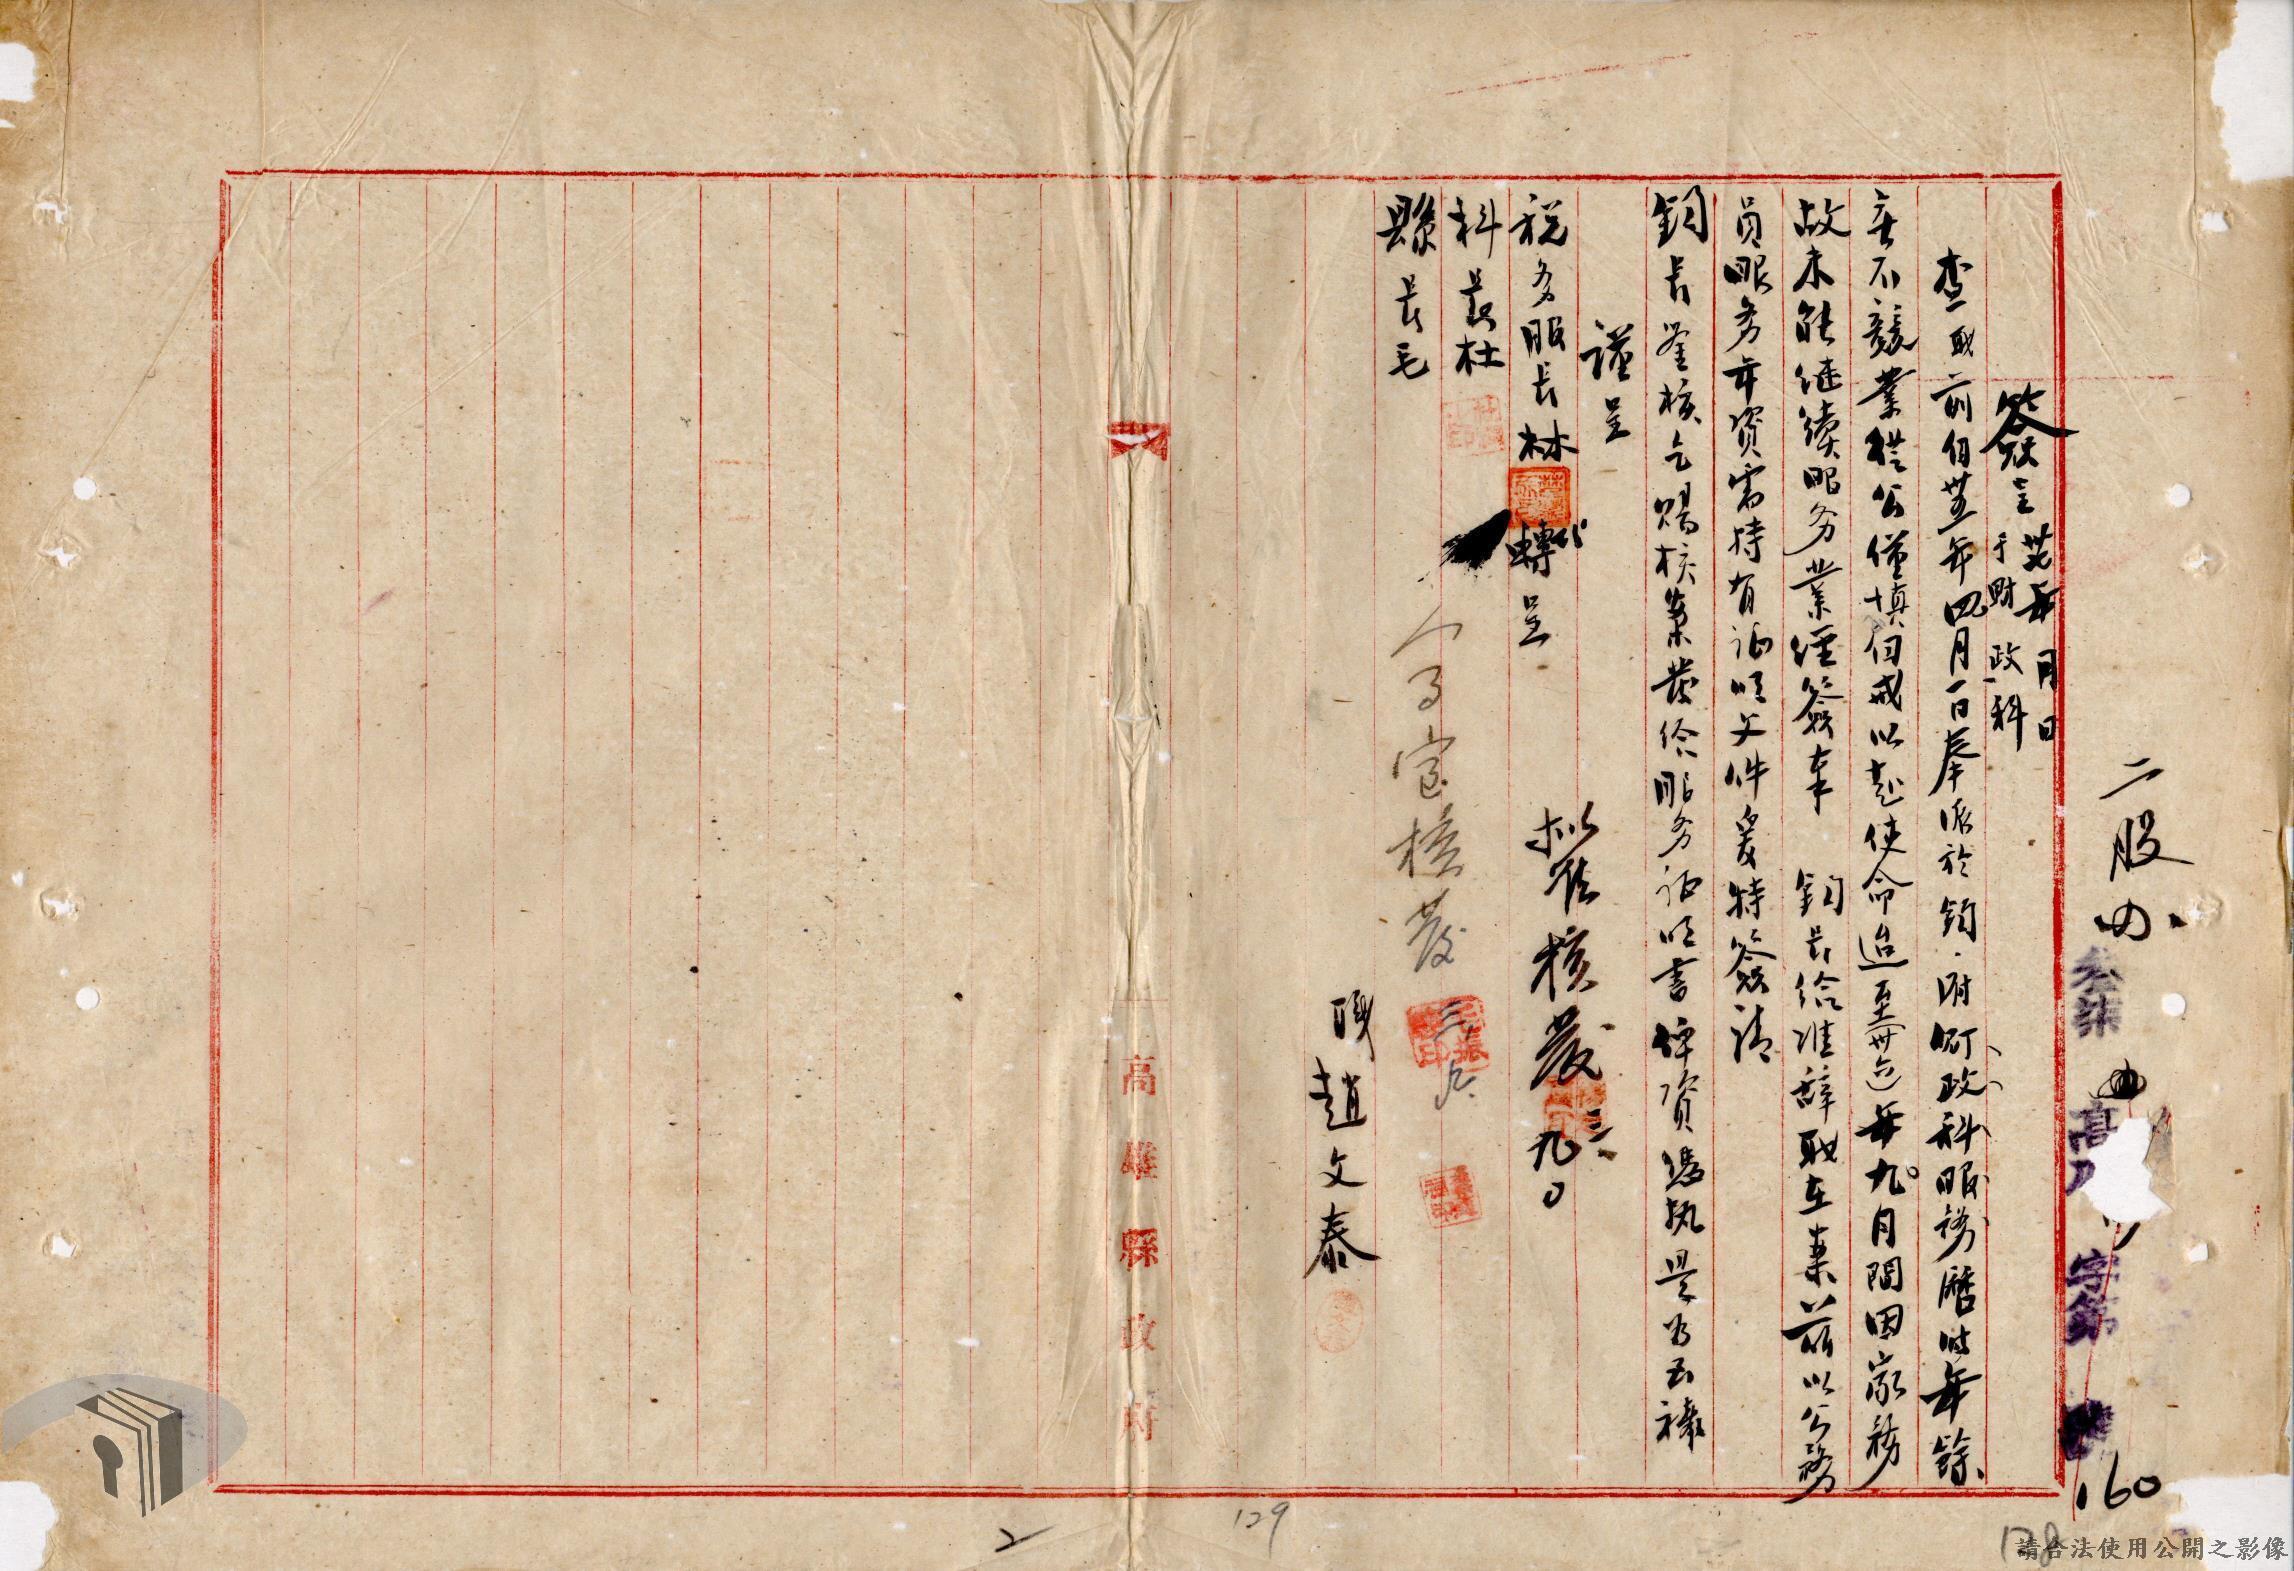 二股
叁柒
高
字第
160
簽呈 于財政科
年 月 日
查職前自卅五年四月一日奉派於鈞府財政科服務曆時年餘
無不兢業從公僅慎自戒以赴使命迨至卅六年九月間因家務
故未能继續服务業經簽奉 鈞長給准辞职在案茲以公務
員服务年資需持有证明文件爰特簽請
鈞長鉴核乞賜核案發給服务证明書俾資憑执是为至禱
謹呈
税务股長林 轉呈
科長杜
縣長毛
拟准核發
三 九
人事室核發
三 九
職趙文泰
高雄縣政府
2
129
128
請合法使用公開之影像